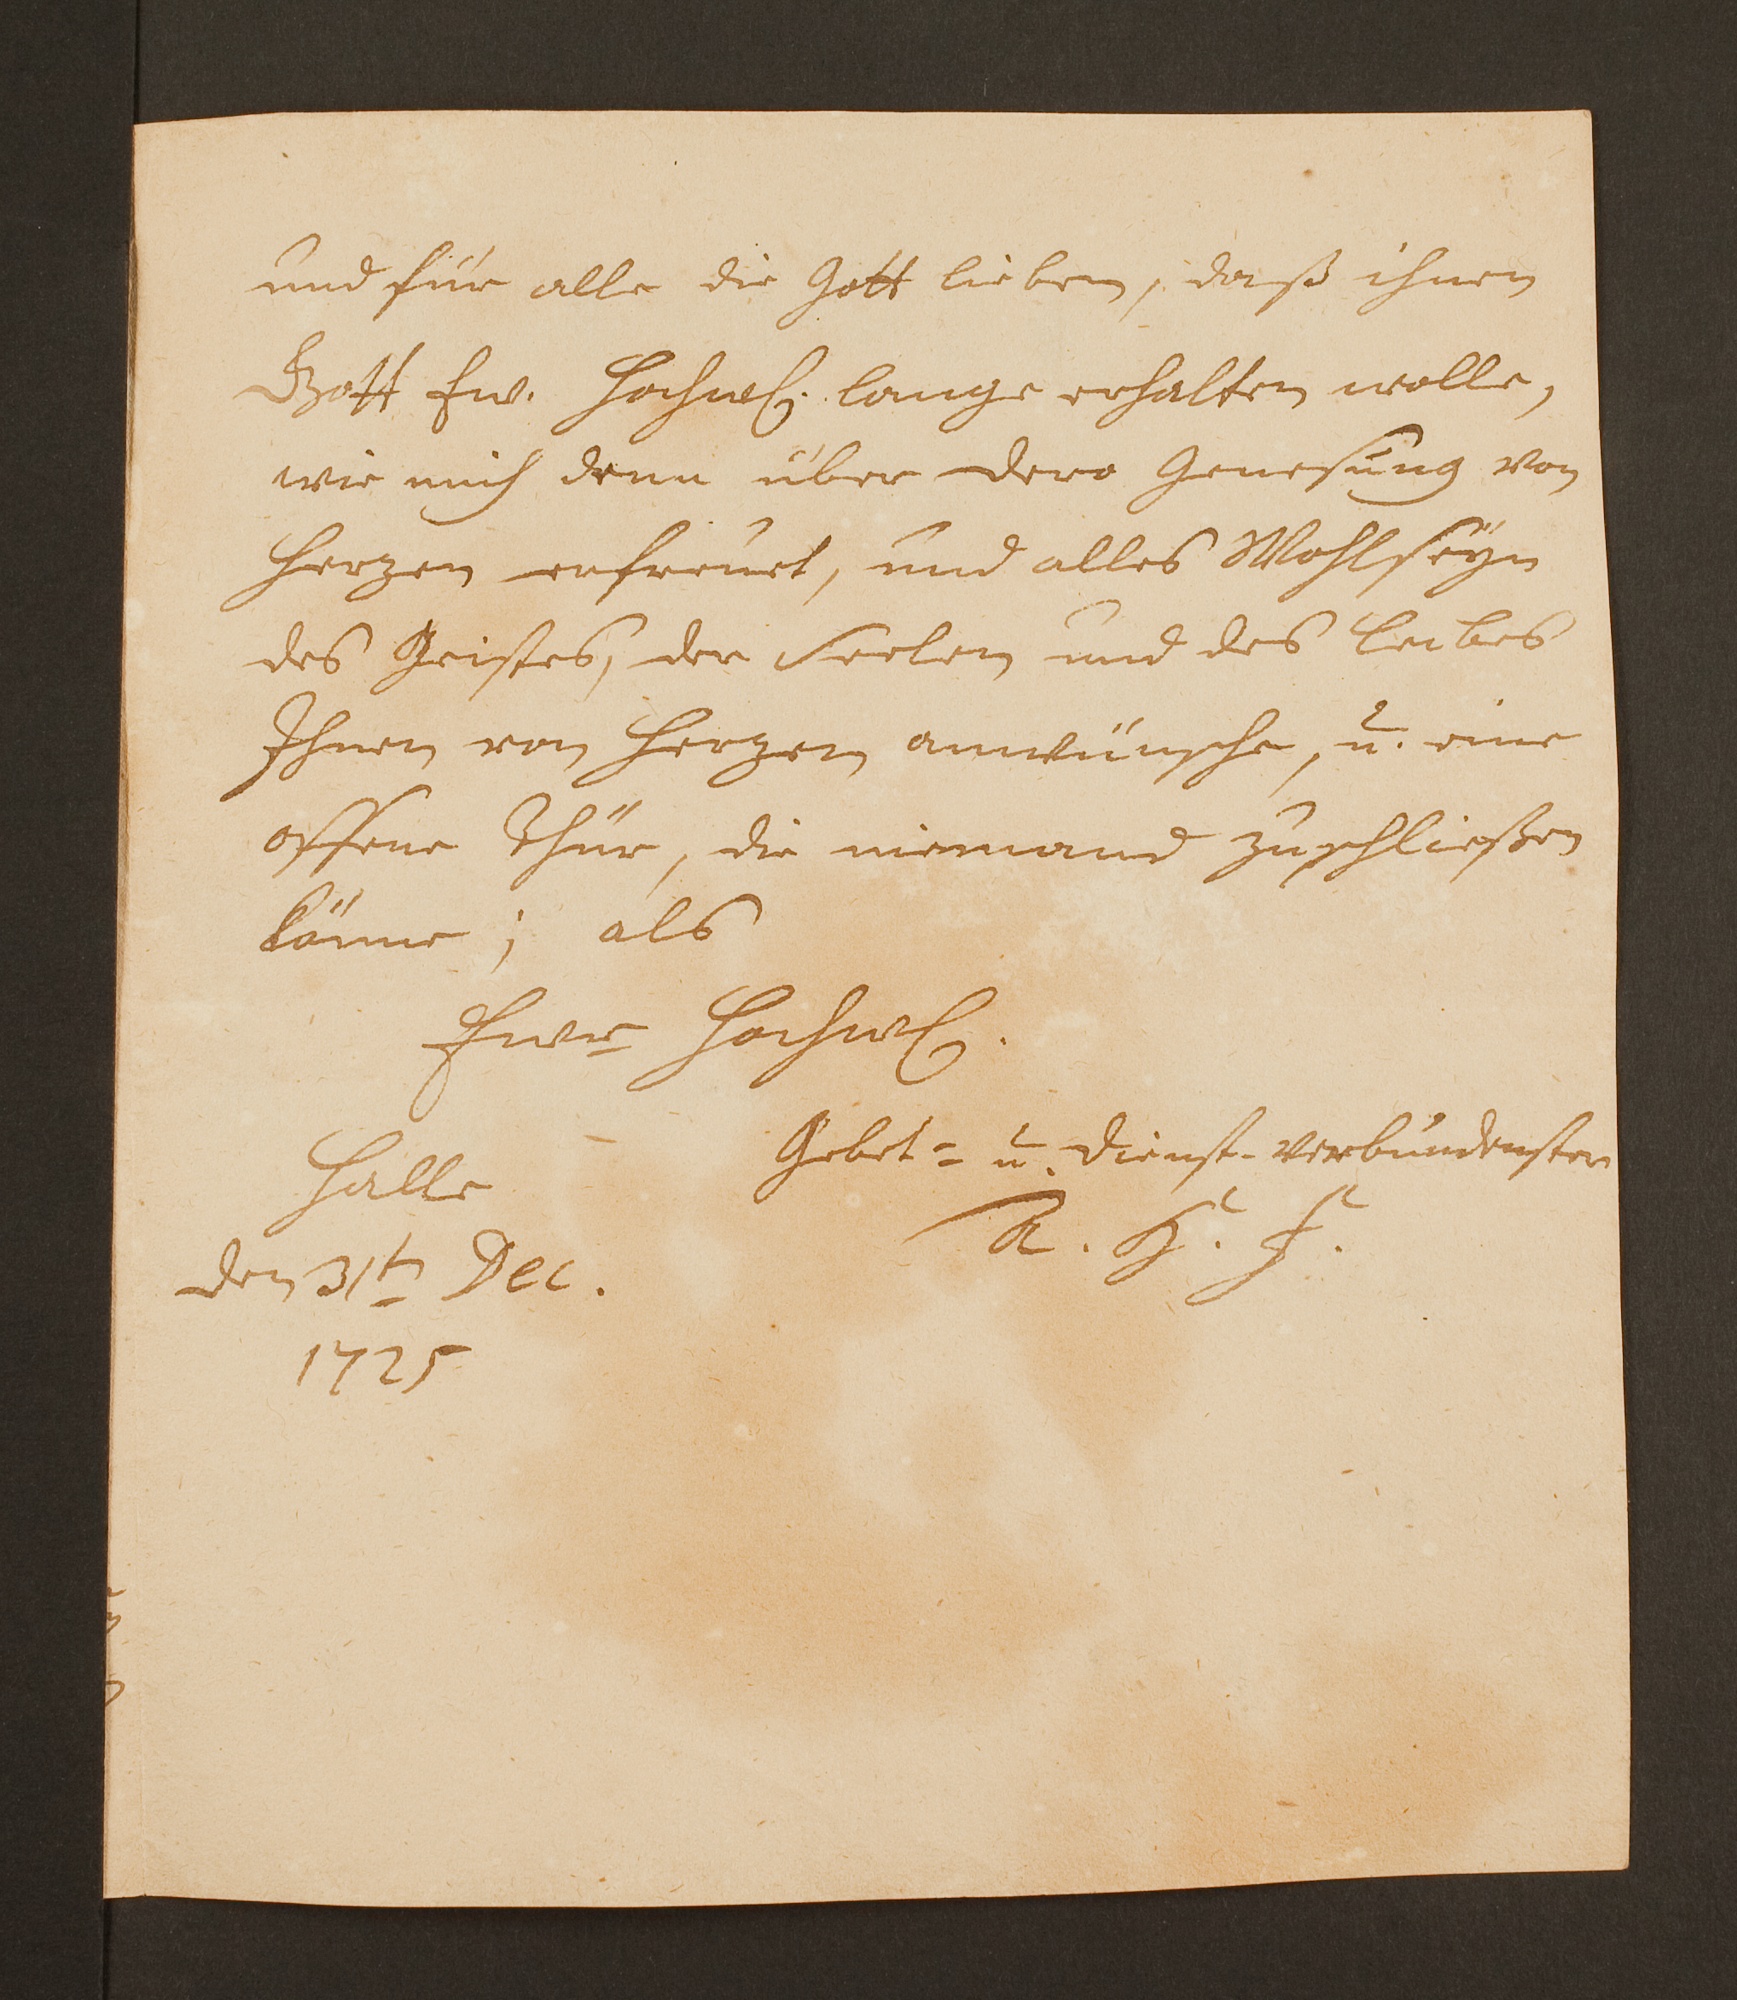 und für alle die Gott lieben, daß ihnen
Gott Ew. Hochw. lange erhalten wolle,
wie mich denn über dero Genesung von
Herzen erfreuet, und alles Wohlseyn
des Geistes, der Seelen und des Leibes
Ihnen von Herzen anwünsche, u. eine
offene Thür, die niemand zuschließen
könne; als
Ewr Hochw.
Gebet- u. Dienst-verbundenster
Halle
A. H. F.
den 31t Dec.
1725